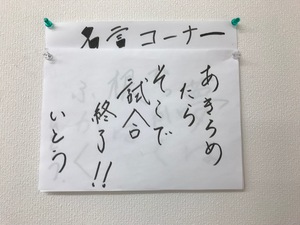 名言コーナー
あきらめ
たら
そこで
試合
終了!!
いとう